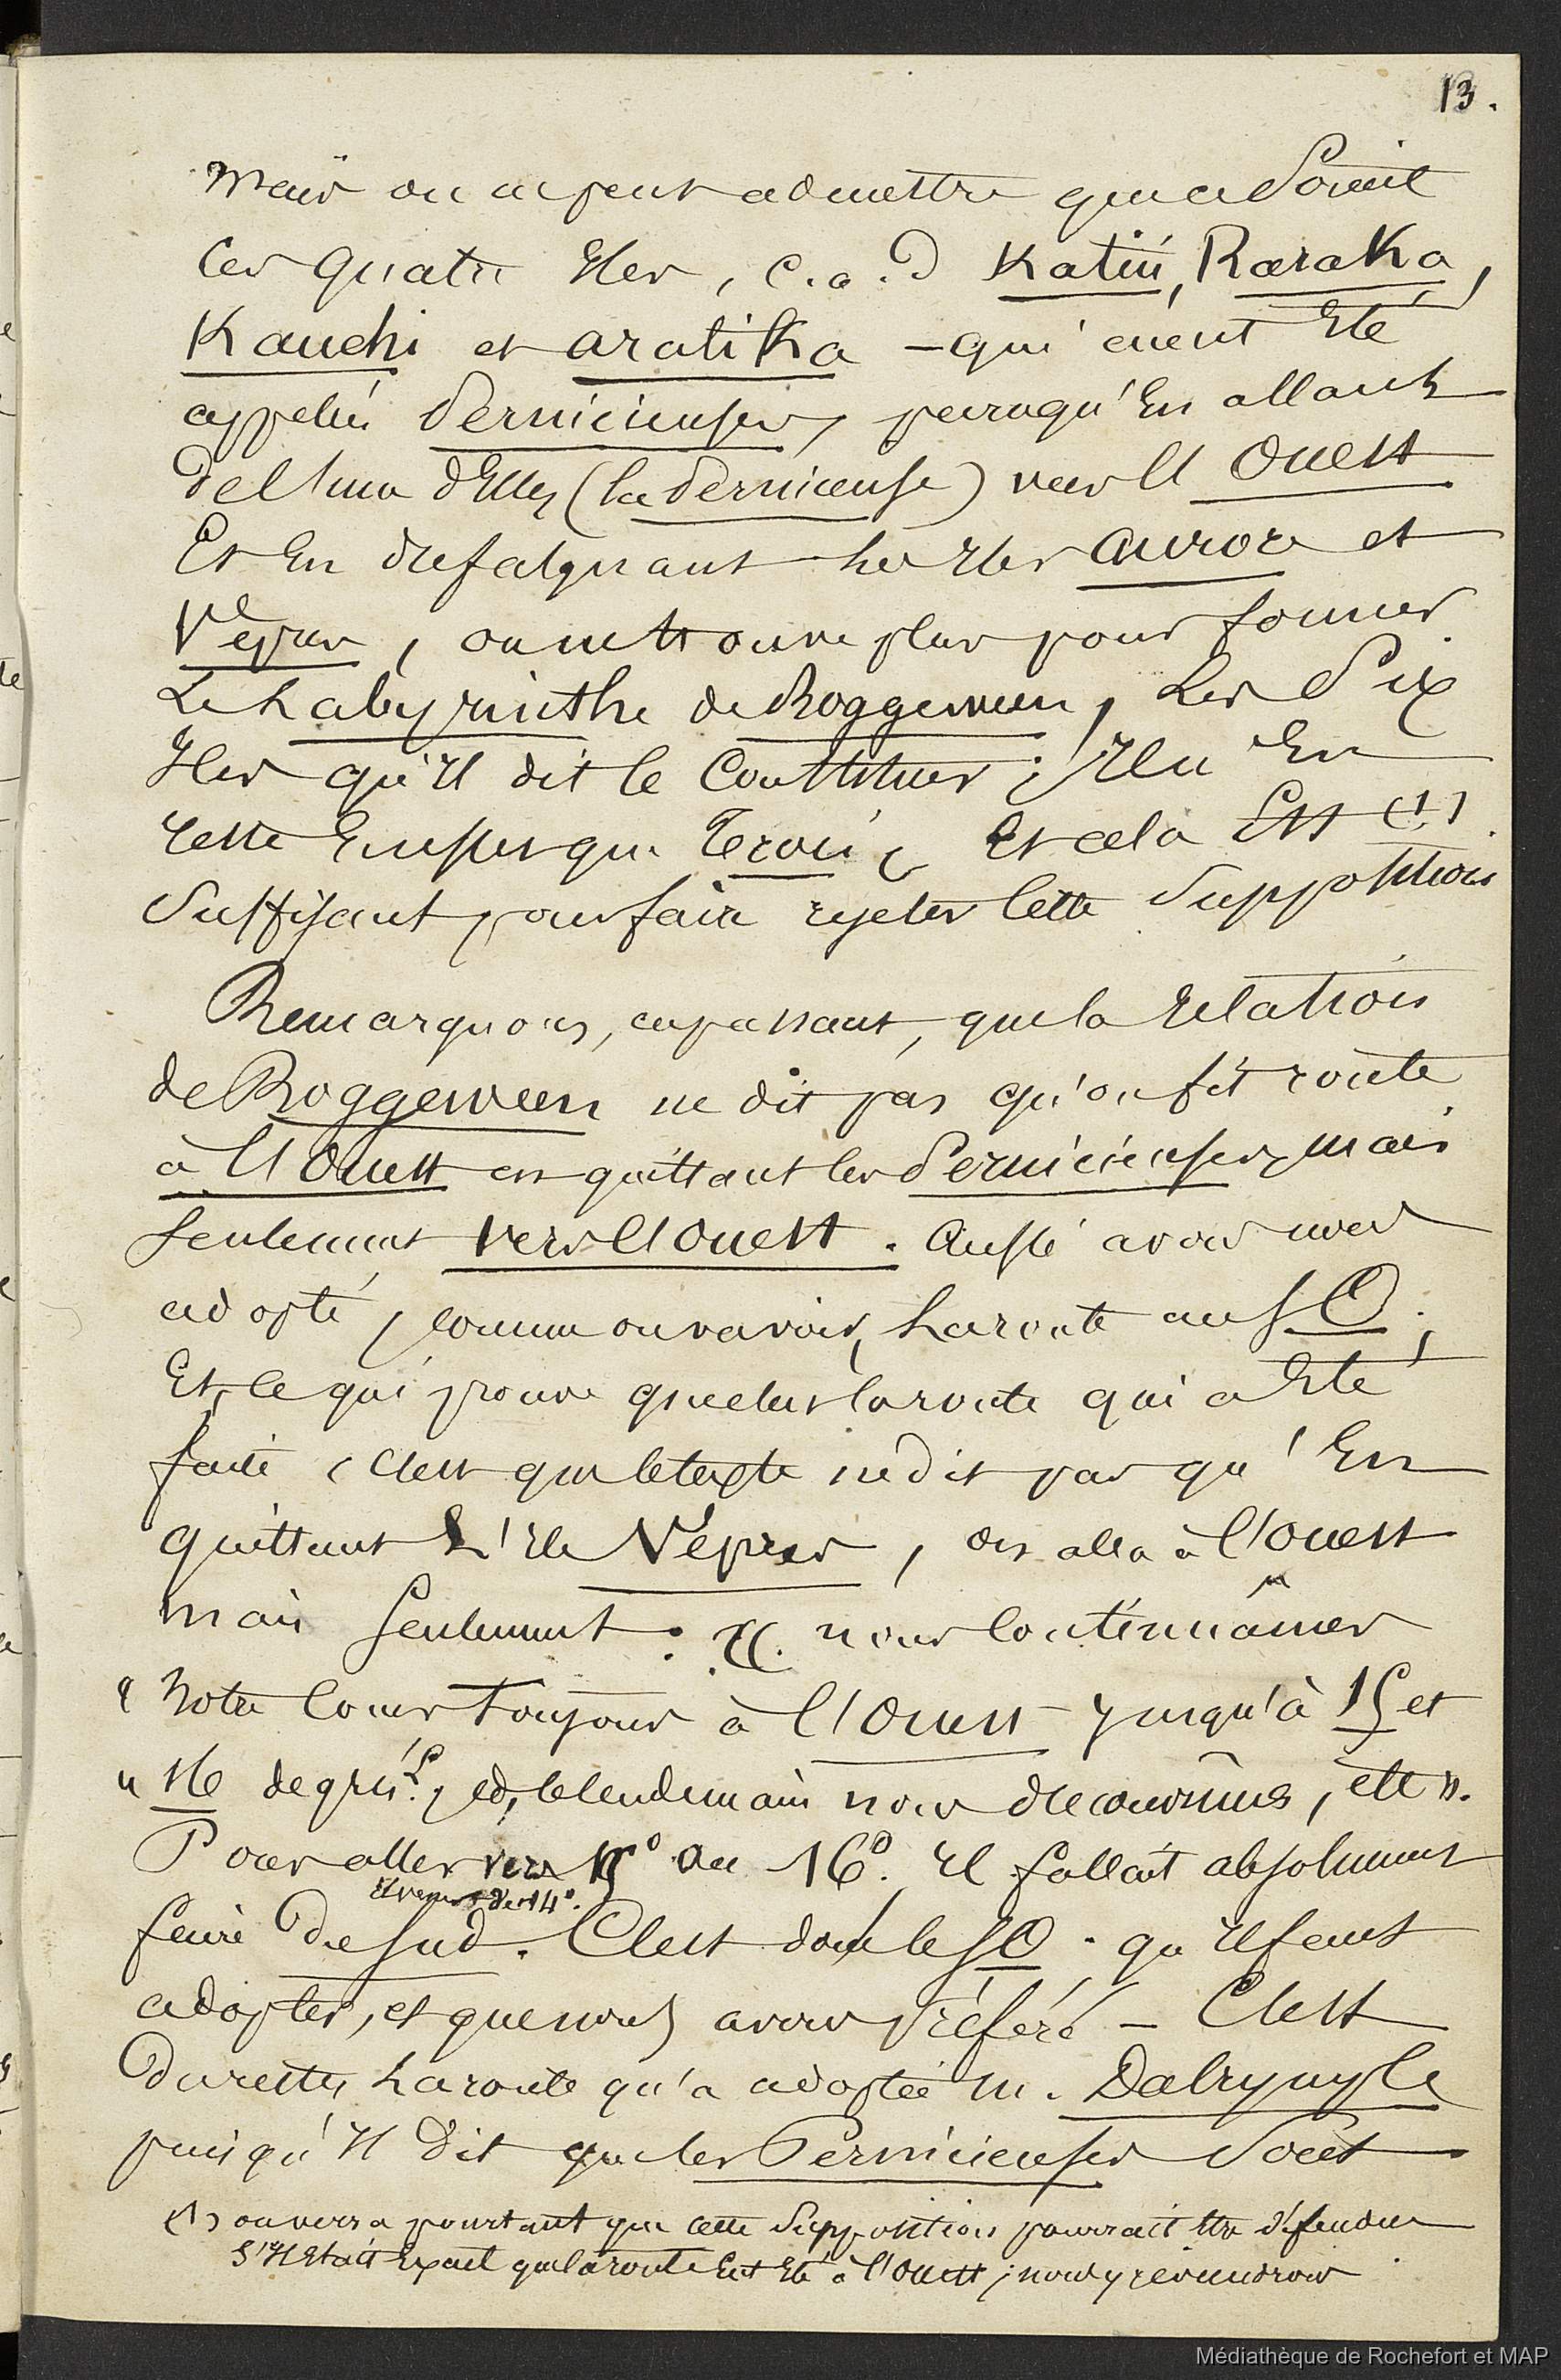 13.
Mais on ne peut admettre que ce soient
ces quatre Iles, c.a.d Katiú, Raraka,
Kauehi et aratika – qui aient Eté
appelées Pernicieuses, puisqu'En allant
de l'une d'Elles (la Pernicieuse) vers l'Ouest
Et En dépassant les Iles aurore et
Vèpres, on ne trouve plus pour former
Le Labyrinthe de Roggeween, Les Six
Iles qu'Il dit le Constituer ; Il n'En
reste En effet que Trois, Et cela Est (1)
Suffisant pour faire rejeter cette Supposition
Remarquons, en passant, que la relation
de Roggeween ne dit pas qu'on fit route
à l'Ouest en quittant les Pernicieuses, mais
seulement vers l'Ouest. Aussi avons nous
adopté, comme on va voir, La route au SO.;
Et, ce qui prouve que c'est la route qui a Eté
faite, c'est que le texte ne dit pas qu'En
quittant L'Ile Vépres, on alla à l'Ouest
mais seulement : « nous continuâmes
« Notre cours toujours à l'Ouest jusqu'à 15 et
« 16 degrés S., et, le lendemain nous découvrîmes, etc ».
Pour aller vers 15° ou 16°. Il fallait absolument
Et venant des 14°.
faire du Sud. C'est donc le SO. qu'Il faut
adopter, et que nous avons préféré – C'est
du reste, La route qu'a adoptée M. Dalrymple
puisqu'Il dit que les Pernicieuses sont
(1) on verra pourtant que cette Supposition pourrait être défendue
S'Il Etait Exact que la route Eut Eté à l'Ouest ; nous y reviendrons
Médiathèque de Rochefort et MAP